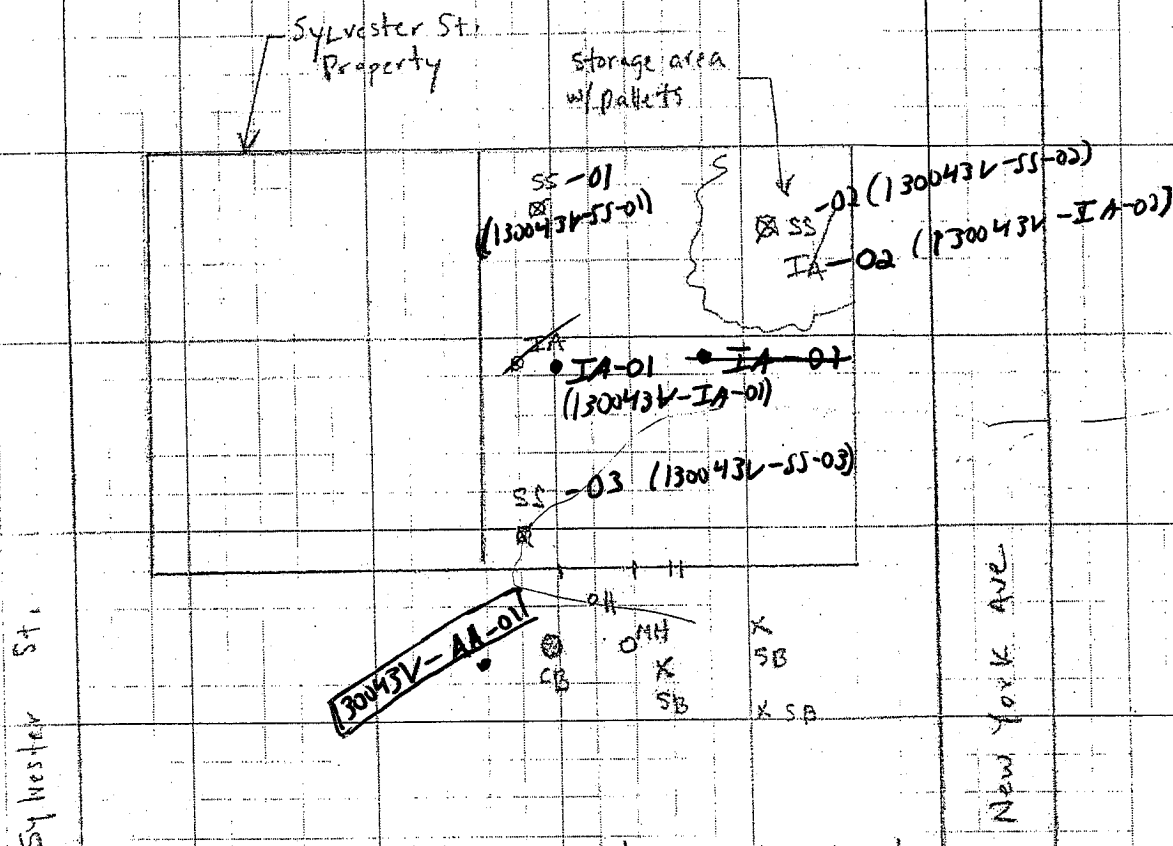 Sylvester St.
Property
Storage area
w/ pallets
SS-01
(130043V-SS-01)
SS-02 (130043V-SS-02)
IA-02 (130043V-IA-02)
IA
IA-01
(130043V-IA-01)
SS-03 (130043V-SS-03)
OH
130043V-AA-01
CB
MH
SB
SB
SB
Sylvester St.
New York Ave